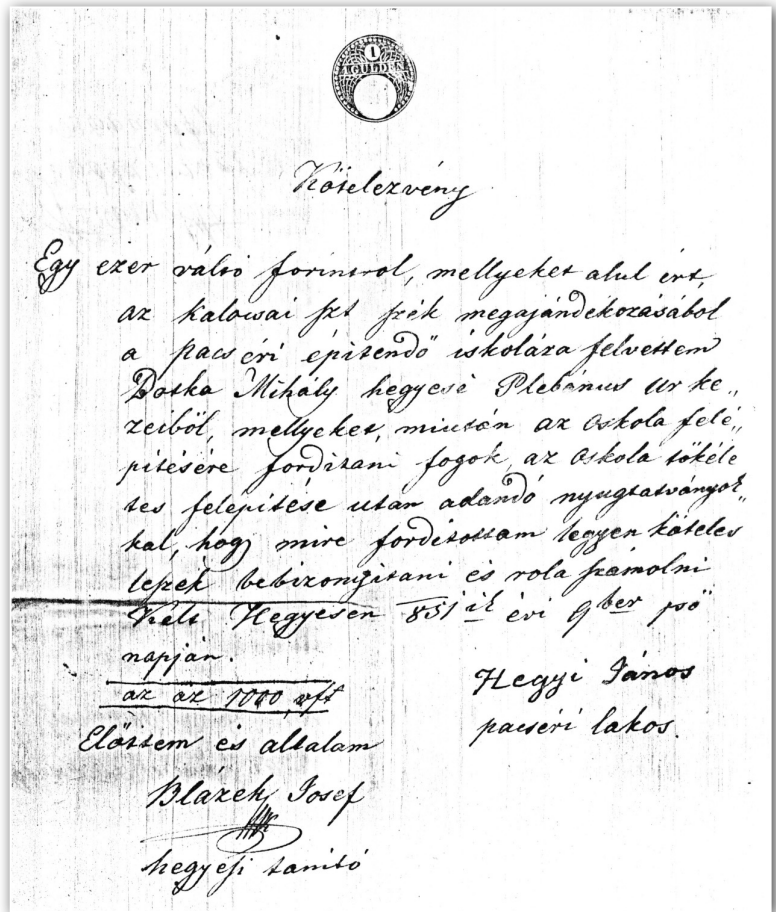 1
1 GULDEN
Kötelezvény
Egy ezer váltó forintrol, mellyeket alul irt,
az kalocsai szt szék megajándékozásábol
a pacséri építendő iskolára felvettem
Botka Mihály hegyesi Plebánus Ur ke„
zeiből, mellyeket, miután az Oskola felé„
pitésére forditani fogok, az Oskola tökéle
tes felepitése utan adandó nyugtatványok„
kal, hogy mire forditottam legyen köteles
lezek bebizonyitani és rola számolni
Kelt Hegyesen 851 ik évi 9ber
napján.
az az 1000 vft
Hegyi János
pacséri lakos.
Előttem és altalam
Blázek Josef
hegyesi tanitó